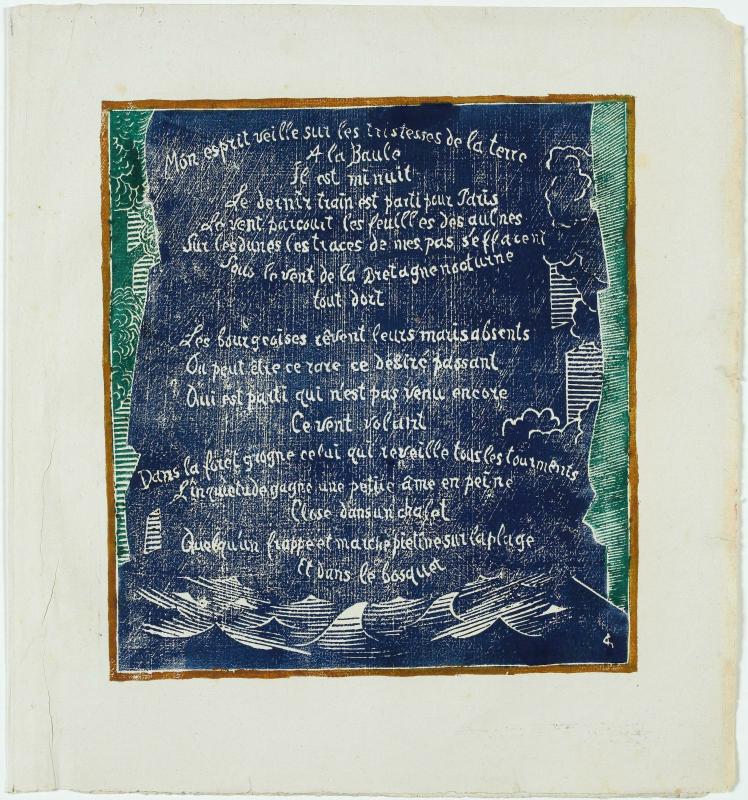 Mon esprit veille sur les tristesses de la terre
A la Baule
Il est minuit
Le dernir train est parti pour Paris
Le vent parcourt les feuilles des aulnes
Sur les dunes les traces de mes pas s'effacent
Sous le vent de la Bretagne nocturne
tout dort
Les bourgeoises rêvent leurs maris absents
Ou peut être ce rare ce désiré passant
Qui est parti qui n'est pas venu encore
Ce vent volant
Dans la forêt grogne celui qui reveille tous les tourments
L'inquietude gagne une petite âme en peine
Close dans un chalet
Quelqu'un frappe et marche pietine sur la plage
Et dans le bosquet